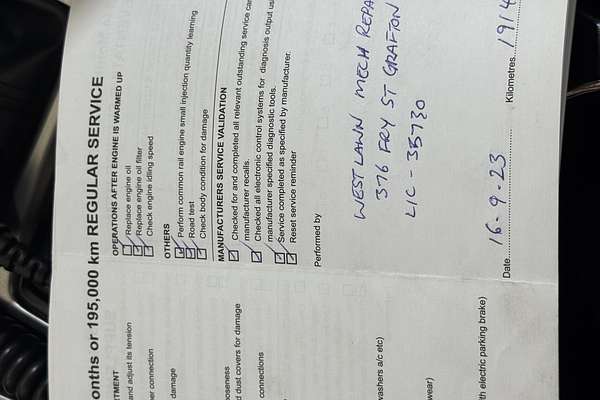 onths or 195,000 km REGULAR SERVICE
RTMENT
and adjust its tension
per connection
damage
looseness
d dust covers for damage
connections
washers a/c etc)
wear)
th electric parking brake)
OPERATIONS AFTER ENGINE IS WARMED UP
Replace engine oil
Replace engine oil filter
Check engine idling speed
OTHERS
Perform common rail engine small injection quantity learning
Road test
Check body condition for damage
MANUFACTURERS SERVICE VALIDATION
Checked for and completed all relevant outstanding service
manufacturer recalls.
Checked all electronic control systems for diagnosis output
manufacturer specified diagnostic tools.
Service completed as specified by manufacturer.
Reset service reminder
Performed by
WESTLAWN MECH REPA
376 FRY ST GRAFTON
LIC - 35730
Date 16.9.23 Kilometres 1914